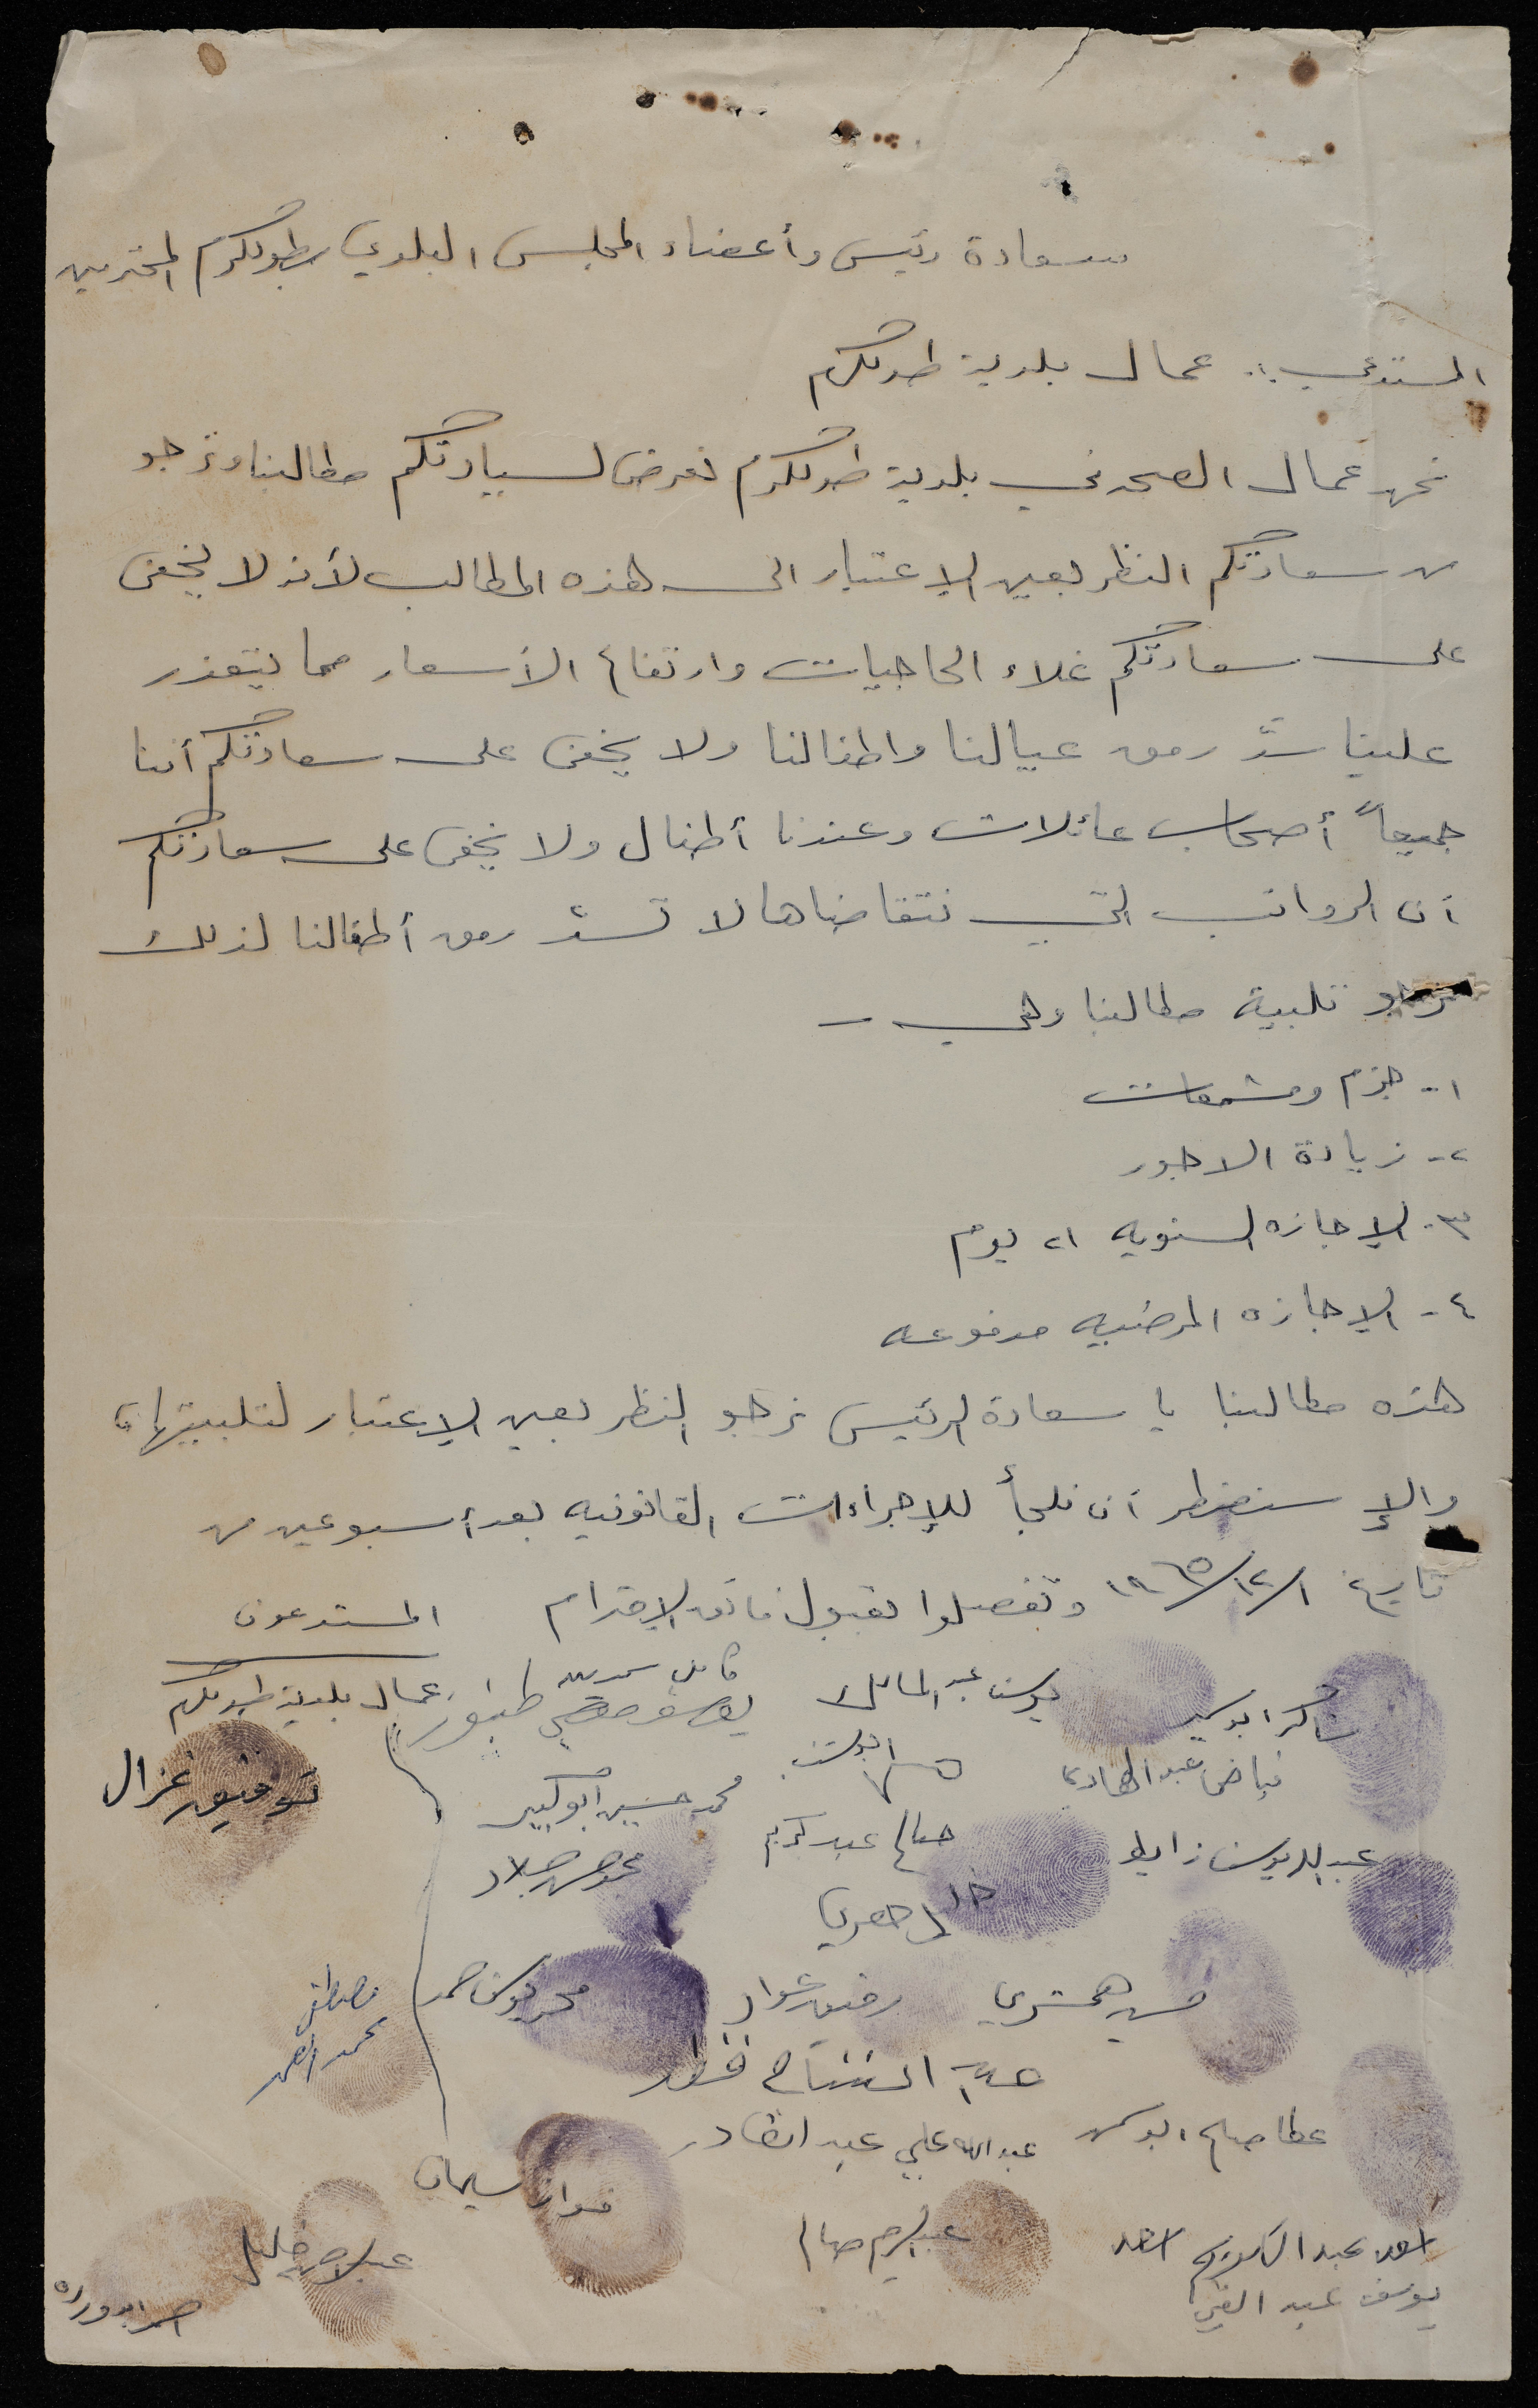 سعادة رئيس وأعضاء المجلس البلدي بطولكرم المحترمين
المستدعي :. عمال بلدية طولكرم
نحن عمال الصحة في بلدية طولكرم نعرض لسيادتكم مطالبنا ونرجو
من سعادتكم النظر بعين الإعتبار الى هذه المطالب لأنه لا يخفى
على سعادتكم غلاء الحاجيات وارتفاع الأسعار مما يتعذر
علينا سدّ رمق عيالنا واطفالنا ولا يخفى على سعادتكم أننا
جميعاً أصحاب عائلات وعندنا أطفال ولا يخفى على سعادتكم
أن الرواتب التي نتقاضاها لا تسدّ رمق أطفالنا لذلك
نرجو تلبية مطالبنا وهي -
١- جزم ومشمعات
٢- زيادة الاجور
٣- الإجازه السنويه ٢١ يوم
٤- الإجازه المرضيه مدفوعه
هذه مطالبنا يا سعادة الرئيس نرجو النظر بعين الإعتبار لتلبيتها
والإ سنضطر أن نلجأ للإجراءات القانونيه بعد أسبوعين من
تاريخ ١/١٢/١٩٦٥ وتفضلوا بقبول فائق الإحترام المستدعون
عمال بلدية طولكرم
شاكر ابو يوسف عبد المالك كامل طنبور
فياض عبد الهادي محمد حسين ابو كبير توفيق غزال
عبد الله يوسف صالح عبد كريم محمود
حسن رفيق عواد محمد يوسف احمد مصطفى محمد
عبد الفتاح
عطا صالح ابو عبد الله علي عبد القادر فواز سليمان
اسعد عبد الكريم اسعد عبد الرحيم صالح خليل احمد ابو وردة
يوسف عبد الغني